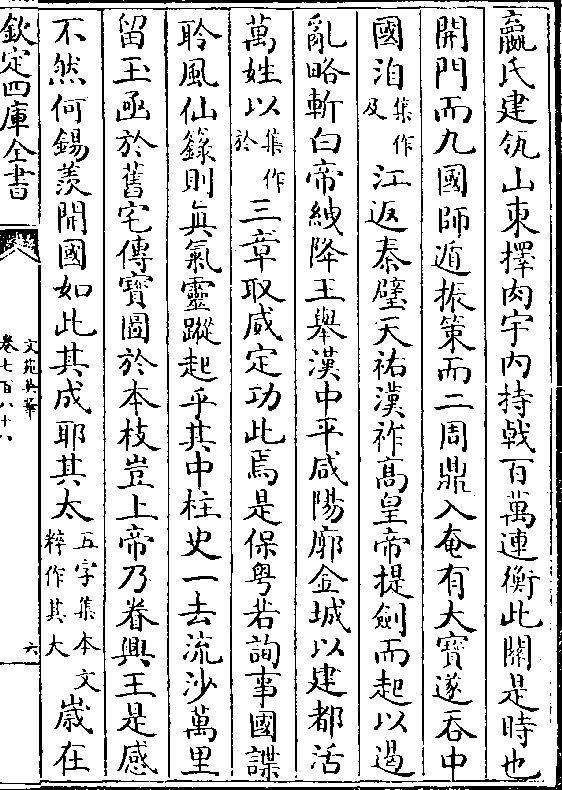 嬴氏建瓴山東擇肉宇內持戟百萬連衡此關是時也
開門而九國師遁振策而二周鼎入奄有大寶遂吞中
國洎集作及江返秦璧天祐漢祚高皇帝提劍而起以遏
亂略斬白帝紲降王舉漢中平咸陽廓金城以建都活
萬姓以集作於三章取威定功此焉是保粤若詢事國諜
聆風仙籙則真氣靈蹤起乎其中柱史一去流沙萬里
留玉函於舊宅傳寶圖於本枝豈上帝乃眷興王是感
不然何錫羨開國如此其成耶其太五字集本文粹作其大歲在
欽定四庫全書
文苑英華
卷七百八十八
六